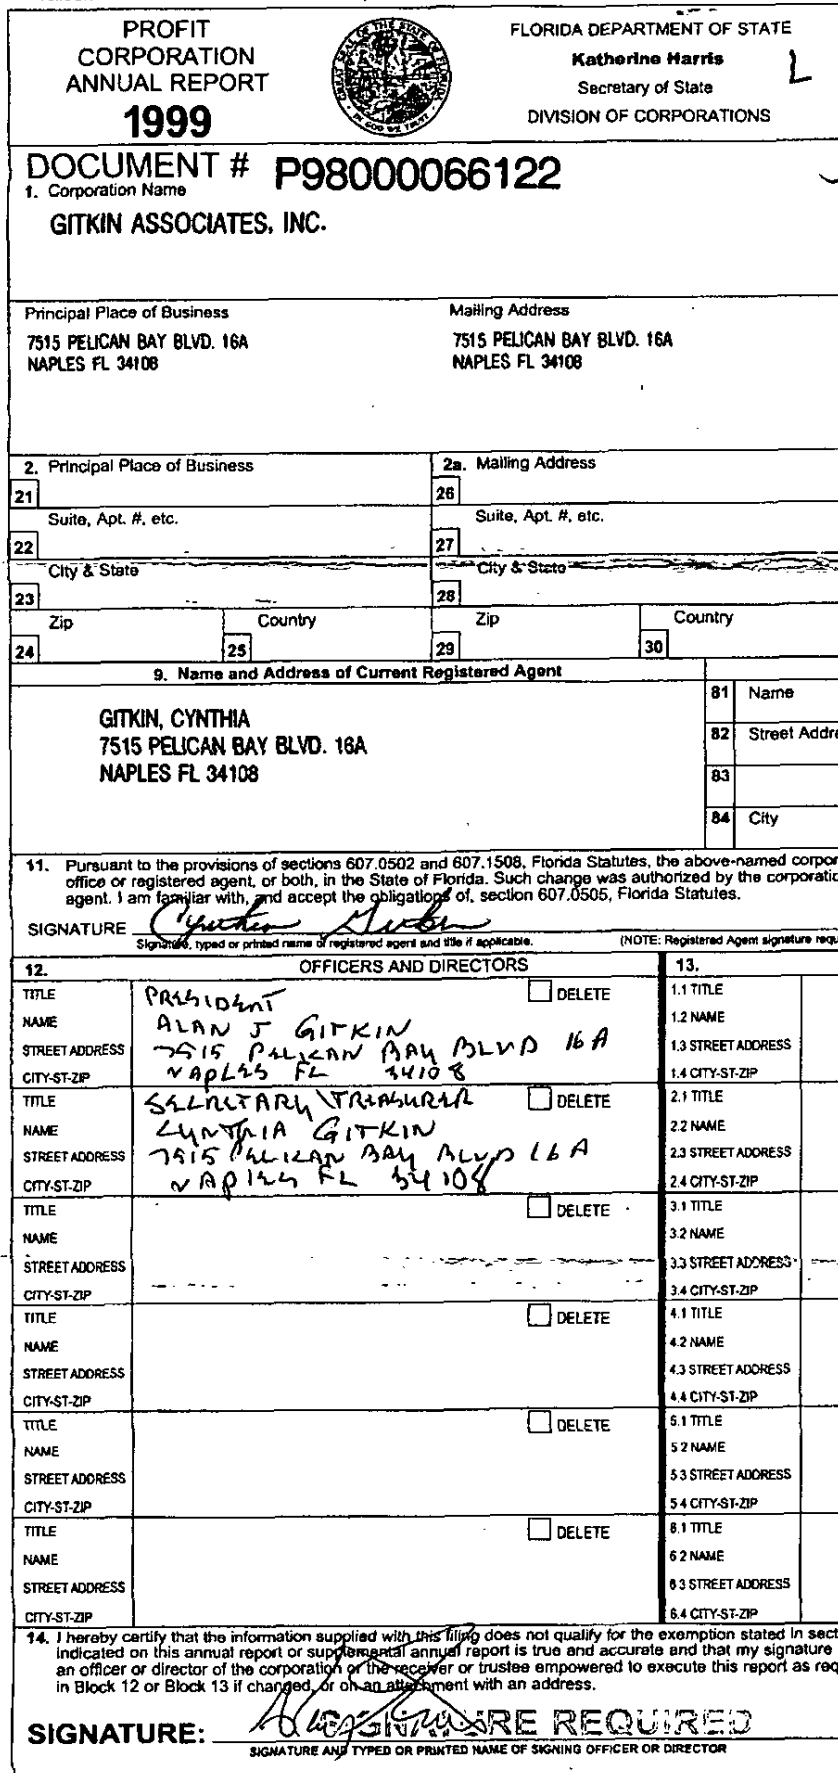 PROFIT
CORPORATION
ANNUAL REPORT
1999
FLORIDA DEPARTMENT OF STATE
Katherine Harris
Secretary of State
DIVISION OF CORPORATIONS
L
DOCUMENT # P98000066122
1. Corporation Name
GITKIN ASSOCIATES, INC.
Principal Place of Business
7515 PELICAN BAY BLVD. 16A
NAPLES FL 34108
Mailing Address
7515 PELICAN BAY BLVD. 16A
NAPLES FL 34108
2. Principal Place of Business
21
Suite, Apt. #, etc.
22
City & State
23
Zip
24
Country
25
2a. Mailing Address
26
Suite, Apt. #, etc.
27
City & State
28
Zip
29
Country
30
9. Name and Address of Current Registered Agent
GITKIN, CYNTHIA
7515 PELICAN BAY BLVD. 16A
NAPLES FL 34108
81 Name
82 Street Addre
83
84 City
11. Pursuant to the provisions of sections 607.0502 and 607.1508, Florida Statutes, the above-named corpor
office or registered agent, or both, in the State of Florida. Such change was authorized by the corporatio
agent. I am familiar with, and accept the obligations of, section 607.0505, Florida Statutes.
SIGNATURE Cynthia Gitkin
Signature, typed or printed name of registered agent and title if applicable. (NOTE: Registered Agent signature requ
12. OFFICERS AND DIRECTORS
TITLE PRESIDENT DELETE
NAME ALAN J GITKIN
STREET ADDRESS 7515 PELICAN BAY BLVD 16A
CITY-ST-ZIP NAPLES FL 34108
TITLE SECRETARY\TREASURER DELETE
NAME CYNTHIA GITKIN
STREET ADDRESS 7515 PELICAN BAY BLVD 16A
CITY-ST-ZIP NAPLES FL 34108
TITLE DELETE
NAME
STREET ADDRESS
CITY-ST-ZIP
TITLE DELETE
NAME
STREET ADDRESS
CITY-ST-ZIP
TITLE DELETE
NAME
STREET ADDRESS
CITY-ST-ZIP
TITLE DELETE
NAME
STREET ADDRESS
CITY-ST-ZIP
13.
1.1 TITLE
1.2 NAME
1.3 STREET ADDRESS
1.4 CITY-ST-ZIP
2.1 TITLE
2.2 NAME
2.3 STREET ADDRESS
2.4 CITY-ST-ZIP
3.1 TITLE
3.2 NAME
3.3 STREET ADDRESS
3.4 CITY-ST-ZIP
4.1 TITLE
4.2 NAME
4.3 STREET ADDRESS
4.4 CITY-ST-ZIP
5.1 TITLE
5 2 NAME
5 3 STREET ADDRESS
5 4 CITY-ST-ZIP
6.1 TITLE
6 2 NAME
6 3 STREET ADDRESS
6.4 CITY-ST-ZIP
14. I hereby certify that the information supplied with this filing does not qualify for the exemption stated in sect
indicated on this annual report or supplemental annual report is true and accurate and that my signature
an officer or director of the corporation or the receiver or trustee empowered to execute this report as req
in Block 12 or Block 13 if changed, or on an attachment with an address.
SIGNATURE: SIGNATURE REQUIRED
SIGNATURE AND TYPED OR PRINTED NAME OF SIGNING OFFICER OR DIRECTOR